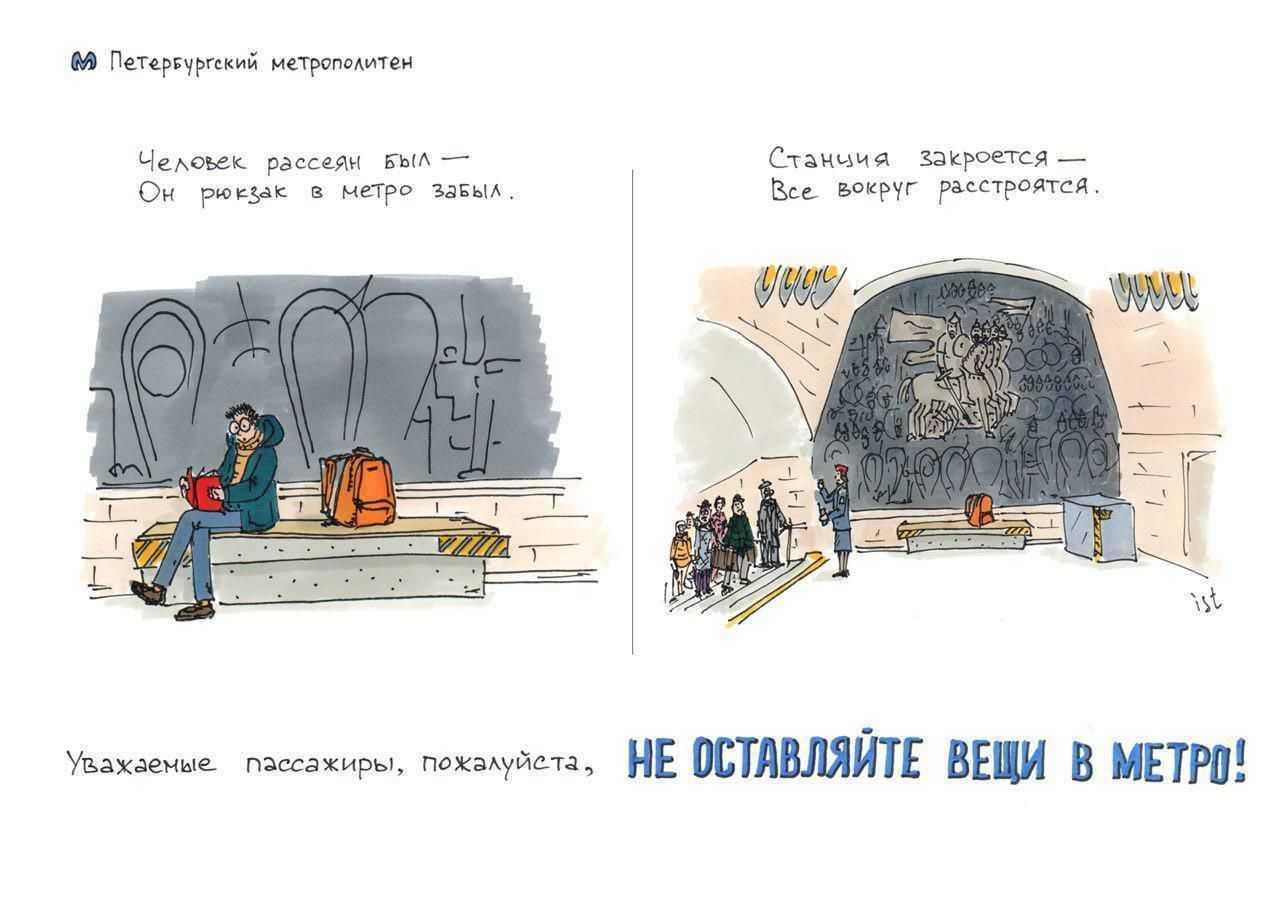 М Петербургский метрополитен
Человек рассеян был —
Он рюкзак в метро забыл.
Станция закроется —
Все вокруг расстроятся.
ist
Уважаемые пассажиры, пожалуйста, НЕ ОСТАВЛЯЙТЕ ВЕЩИ В МЕТРО!